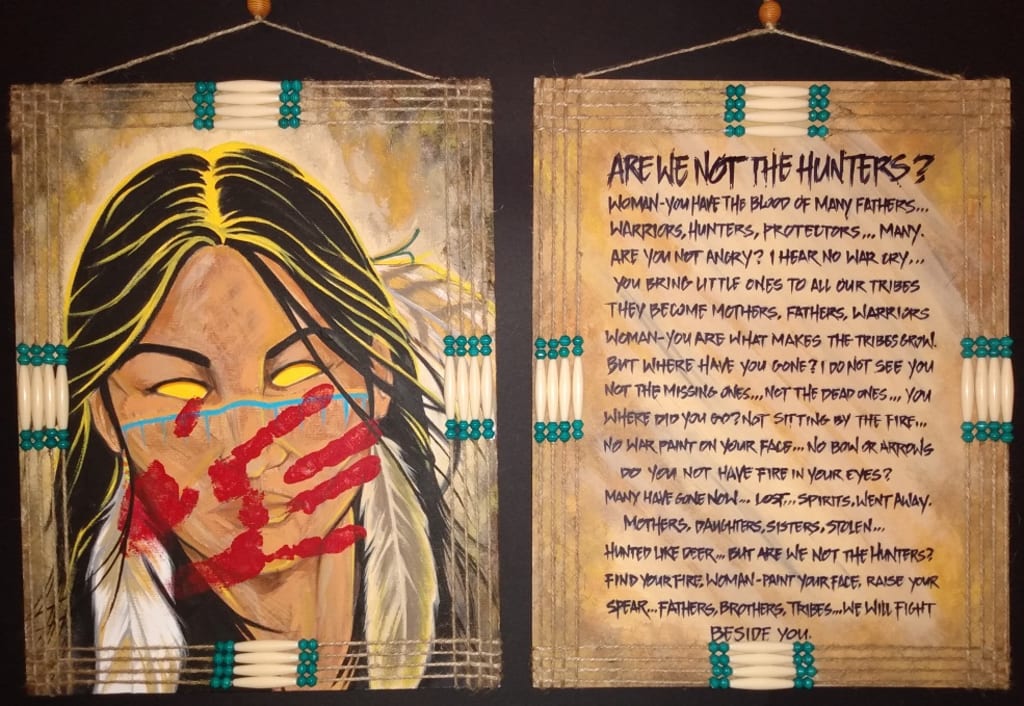 ARE WE NOT THE HUNTERS?
WOMAN-YOU HAVE THE BLOOD OF MANY FATHERS...
WARRIORS, HUNTERS, PROTECTORS... MANY.
ARE YOU NOT ANGRY? I HEAR NO WAR CRY...
YOU BRING LITTLE ONES TO ALL OUR TRIBES
THEY BECOME MOTHERS, FATHERS, WARRIORS
WOMAN-YOU ARE WHAT MAKES THE TRIBES GROW.
BUT WHERE HAVE YOU GONE? I DO NOT SEE YOU
NOT THE MISSING ONES... NOT THE DEAD ONES... YOU
WHERE DID YOU GO? NOT SITTING BY THE FIRE...
NO WAR PAINT ON YOUR FACE... NO BOW OR ARROWS
DO YOU NOT HAVE FIRE IN YOUR EYES?
MANY HAVE GONE NOW... LOST... SPIRITS, WENT AWAY.
MOTHERS, DAUGHTERS, SISTERS, STOLEN...
HUNTED LIKE DEER... BUT ARE WE NOT THE HUNTERS?
FIND YOUR FIRE, WOMAN-PAINT YOUR FACE, RAISE YOUR
SPEAR... FATHERS, BROTHERS, TRIBES... WE WILL FIGHT
BESIDE YOU.